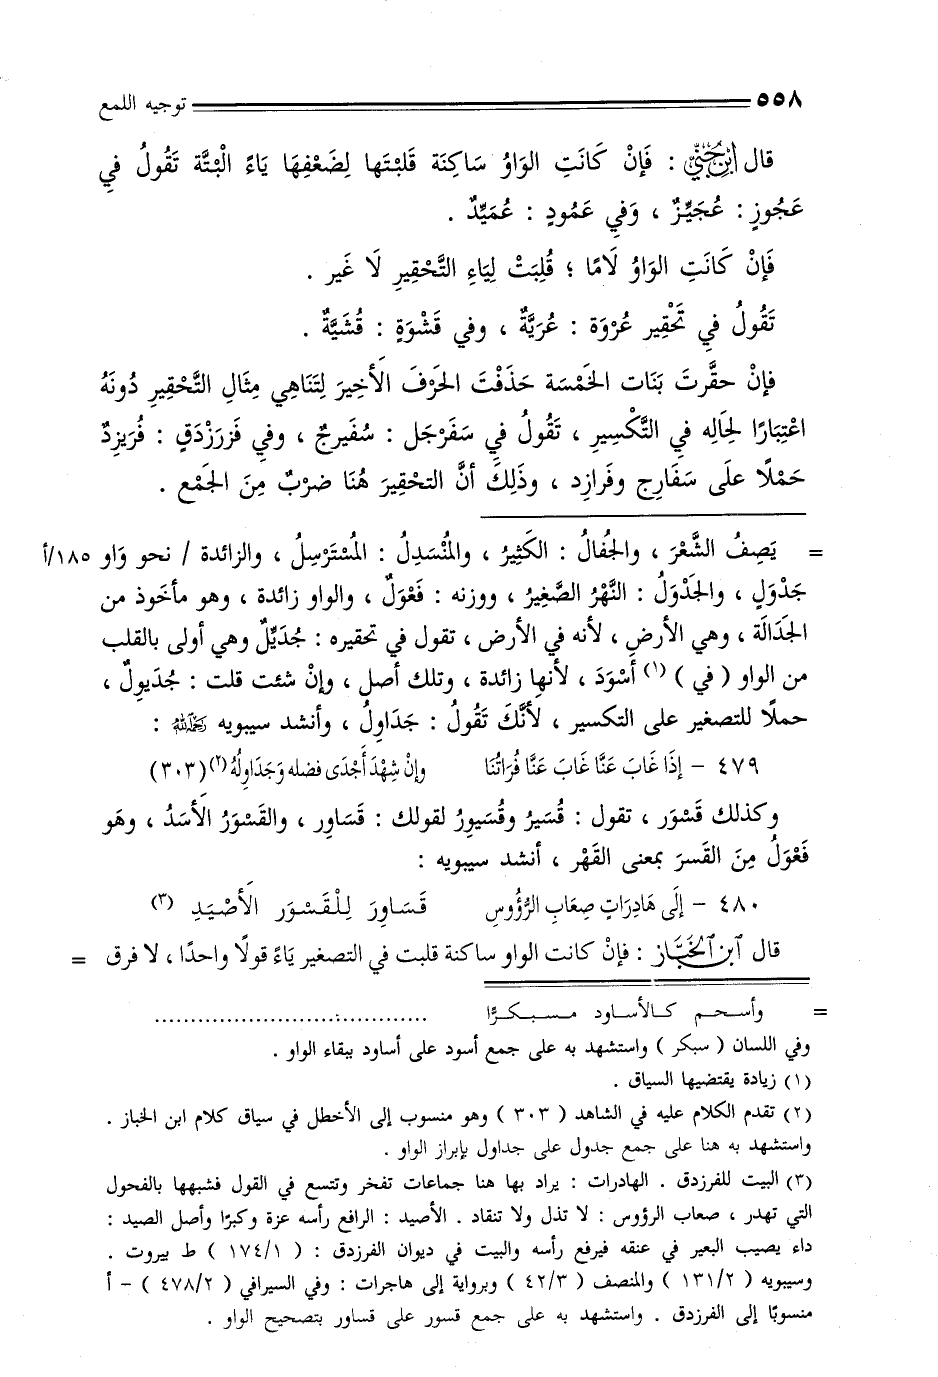 ٥٥٨ توجيه اللمع
قال ابن جني : فَإِنْ كَانَتِ الوَاوُ سَاكِنَة قَلبْتَها لِضَعْفِهَا يَاءً الْبتَّة تَقُولُ فِي
عَجُوزٍ : عُجَيِّزٌ ، وَفِي عَمُودٍ : عُمَيِّدٌ .
فَإِنْ كَانَتِ الوَاوُ لَامًا ؛ قُلِبَتْ لِيَاءِ التَّحْقِيرِ لَا غَير .
تَقُولُ فِي تَحْقِير عُرْوَة : عُرَيَّةٌ ، وفي قَشْوَةٍ : قُشَيَّةٌ .
فإنْ حقَّرتَ بَنَات الخَمْسَة حَذَفْتَ الحَرْفَ الأَخِيرَ لِتَنَاهِي مِثَالِ التَّحْقِيرِ دُونَهُ
اعْتِبَارًا لِحَالِه فِي التَّكْسِيرِ ، تَقُولُ فِي سَفَرْجَل : سُفَيرجٌ ، وفي فَرَزْدَقٍ : فُرَيزِدٌ
حَمْلًا علَى سَفَارِج وفَرازِد ، وذَلِكَ أنَّ التحْقِيرَ هُنَا ضرْبٌ مِنَ الجَمْع .
= يَصِفُ الشَّعْرَ ، والجُفالُ : الكَثِيرُ ، والمُنْسَدِلُ : المُسْتَرْسِلُ ، والزائدة / نحو وَاو ١٨٥/أ
جَدْوَلٍ ، والجَدْوَلُ : النَّهْرُ الصَّغِيرُ ، ووزنه : فَعْوَلٌ ، والواو زائدة ، وهو مأخَوذ من
الجَدَالَة ، وهي الأرض ، لأنه في الأرض ، تقول في تحقيره : جُدَيِّلٌ وهي أولى بالقلب
من الواو ( في ) (١) أَسْوَدَ ، لأنها زائدة ، وتلك أصل ، وإنْ شئت قلت : جُدَيولٌ ،
حملًا للتصغير على التكسير ، لأَنَّكَ تَقُولُ : جَدَاوِلُ ، وأنشد سيبويه رحمه الله :
٤٧٩ - إذَا غَابَ عَنَّا غَابَ عَنَّا فُرَاتُنَا وإنْ شهْدَ أَجْدَى فضله وَجَدَاوِلُهُ (٢) (٣٠٣)
وكذلك قَسْوَر ، تقول : قُسَيرُ وقُسَيورُ لقولك : قَسَاوِر ، والقَسْوَرُ الأَسَدُ ، وهَو
فَعْوَلُ مِنَ القَسرَ بمعنى القَهْر ، أنشد سيبويه :
٤٨٠ - إلَى هَادِرَاتٍ صِعَابِ الرُّؤُوسِ قَسَاوِرَ لِلْقَسْوَر الأَصْيَدِ (٣)
قال ابن الخباز : فإنْ كانت الواو ساكنة قلبت في التصغير يَاءً قولًا واحدًا ، لا فرق =
= وأسحم كالأساود مسبكرًا ......................................
وفي اللسان ( سبكر ) واستشهد به على جمع أسود على أساود ببقاء الواو .
(١) زيادة يقتضيها السياق .
(٢) تقدم الكلام عليه في الشاهد ( ٣٠٣ ) وهو منسوب إلى الأخطل في سياق كلام ابن الخباز .
واستشهد به هنا على جمع جدول على جداول بإبراز الواو .
(٣) البيت للفرزدق . الهادرات : يراد بها هنا جماعات تفخر وتتسع في القول فشبهها بالفحول
التي تهدر ، صعاب الرؤوس : لا تذل ولا تنقاد . الأصيد : الرافع رأسه عزة وكبرًا وأصل الصيد :
داء يصيب البعير في عنقه فيرفع رأسه والبيت في ديوان الفرزدق : ( ١٧٤/١ ) ط بيروت .
وسيبويه ( ١٣١/٢ ) والمنصف ( ٤٢/٣ ) وبرواية إلى هاجرات : وفي السيرافي ( ٤٧٨/٢ ) - أ
منسوبًا إلى الفرزدق . واستشهد به على جمع قسور على قساور بتصحيح الواو .